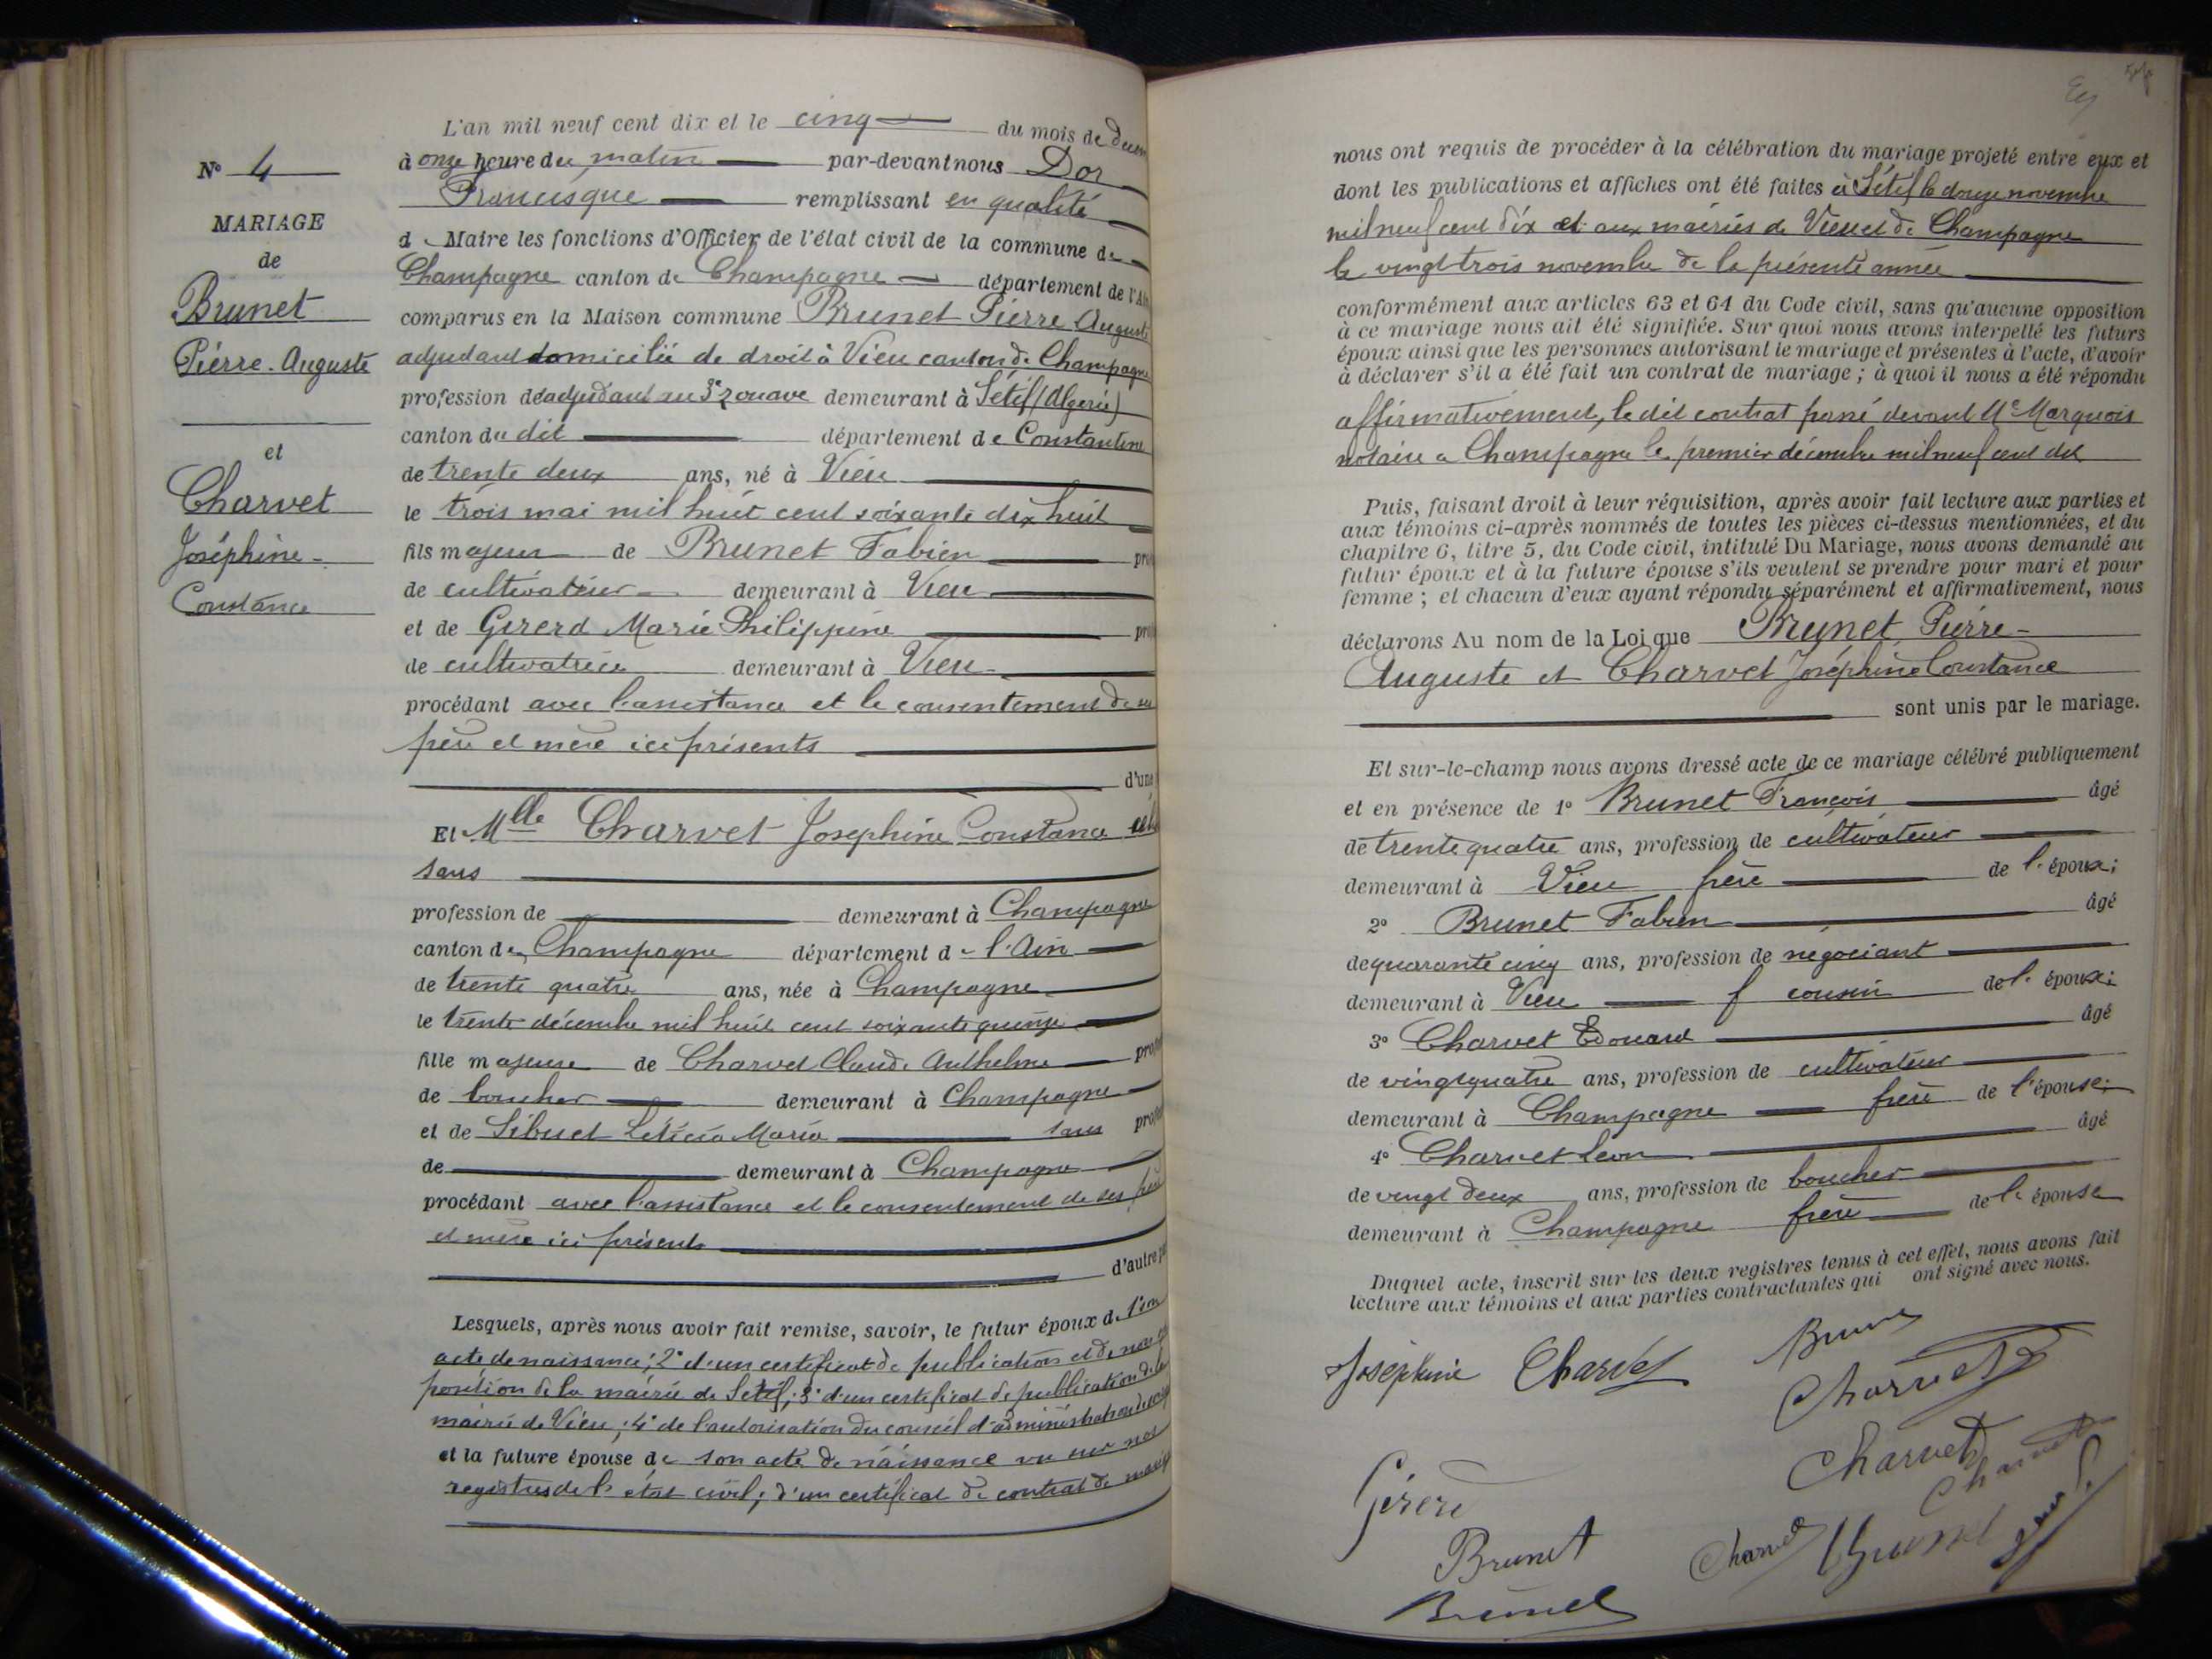 L'an mil neuf cent dix et le cinq du mois de
à onze heure du matin par-devant nous Dor
Francisque remplissant en qualité
d Maire les fonctions d'Officier de l'état civil de la commune de
Champagne canton de Champagne département de l'Ain
comparus en la Maison commune Brunet Pierre Auguste
adjudant domicilié de droit à Vieu canton de Champagne
profession de adjudant au 3e zouave demeurant à Sétif (Algérie)
canton du dit département de Constantine
de trente deux ans, né à Vieu
le trois mai mil huit cent soixante dix huit
fils majeur de Brunet Fabien pro
de cultivateur demeurant à Vieu
et de Gererd Marie Philippine pro
de cultivatrice demeurant à Vieu
procédant avec l'assistance et le consentement de ses
père et mère ici présents
d'une
N° 4
MARIAGE
de
Brunet
Pierre-Auguste
et
Charvet
Joséphine-
Constance
Et Mlle Charvet Josephine Constance
sans
profession de demeurant à Champagne
canton de Champagne département de l'Ain
de trente quatre ans, née à Champagne
le trente décembre mil huit cent soixante quinze
fille majeure de Charvet Claude Anthelme prof
de boucher demeurant à Champagne
et de Sibuet Leticia Maria sans prof
de demeurant à Champagne
procédant avec l'assistance et le consentement de ses père
et mère ici présents
d'autre part
Lesquels, après nous avoir fait remise, savoir, le futur époux de son
acte de naissance; 2° d'un certificat de publication et de non op
position de la mairie de Sétif; 3° d'un certificat de publication de la
mairie de Vieu; 4° de l'autorisation du conseil d'administration
et la future épouse de son acte de naissance vu sur nos
registres de l'état civil; d'un certificat de contrat de mariage
nous ont requis de procéder à la célébration du mariage projeté entre eux et
dont les publications et affiches ont été faites à Sétif le douze novembre
mil neuf cent dix et aux mairies de Vieu et de Champagne
le vingt trois novembre de la présente année
conformément aux articles 63 et 64 du Code civil, sans qu'aucune opposition
à ce mariage nous ait été signifiée. Sur quoi nous avons interpellé les futurs
époux ainsi que les personnes autorisant le mariage et présentes à l'acte, d'avoir
à déclarer s'il a été fait un contrat de mariage; à quoi il nous a été répondu
affirmativement, le dit contrat passé devant Me Marquois
notaire a Champagne le premier décembre mil neuf cent dix
Puis, faisant droit à leur réquisition, après avoir fait lecture aux parties et
aux témoins ci-après nommés de toutes les pièces ci-dessus mentionnées, et du
chapitre 6, titre 5, du Code civil, intitulé Du Mariage, nous avons demandé au
futur époux et à la future épouse s'ils veulent se prendre pour mari et pour
femme; et chacun d'eux ayant répondu séparément et affirmativement, nous
déclarons Au nom de la Loi que Brunet Pierre-
Auguste et Charvet Joséphine Constance
sont unis par le mariage.
Et sur-le-champ nous avons dressé acte de ce mariage célébré publiquement
et en présence de 1° Brunet François âgé
de trente quatre ans, profession de cultivateur
demeurant à Vieu frère de l'époux;
2° Brunet Fabien âgé
de quarante cinq ans, profession de négociant
demeurant à Vieu cousin de l'époux;
3° Charvet Edouard âgé
de vingt quatre ans, profession de cultivateur
demeurant à Champagne frère de l'épouse;
4° Charvet Léon âgé
de vingt deux ans, profession de boucher
demeurant à Champagne frère de l'épouse
Duquel acte, inscrit sur les deux registres tenus à cet effet, nous avons fait
lecture aux témoins et aux parties contractantes qui ont signé avec nous.
Joséphine Charvet Brunet
Charvet
Charvet
Charvet
Gérerd
Brunet Charvet Brunet
Brunet